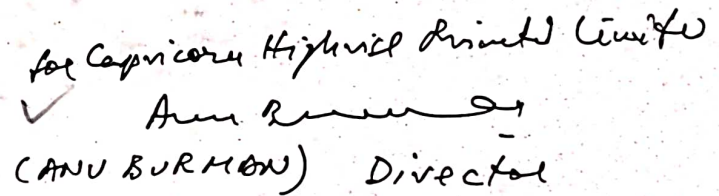 for Capricorn Highrise Private Limited
Anu Burman
(ANU BURMAN) Director